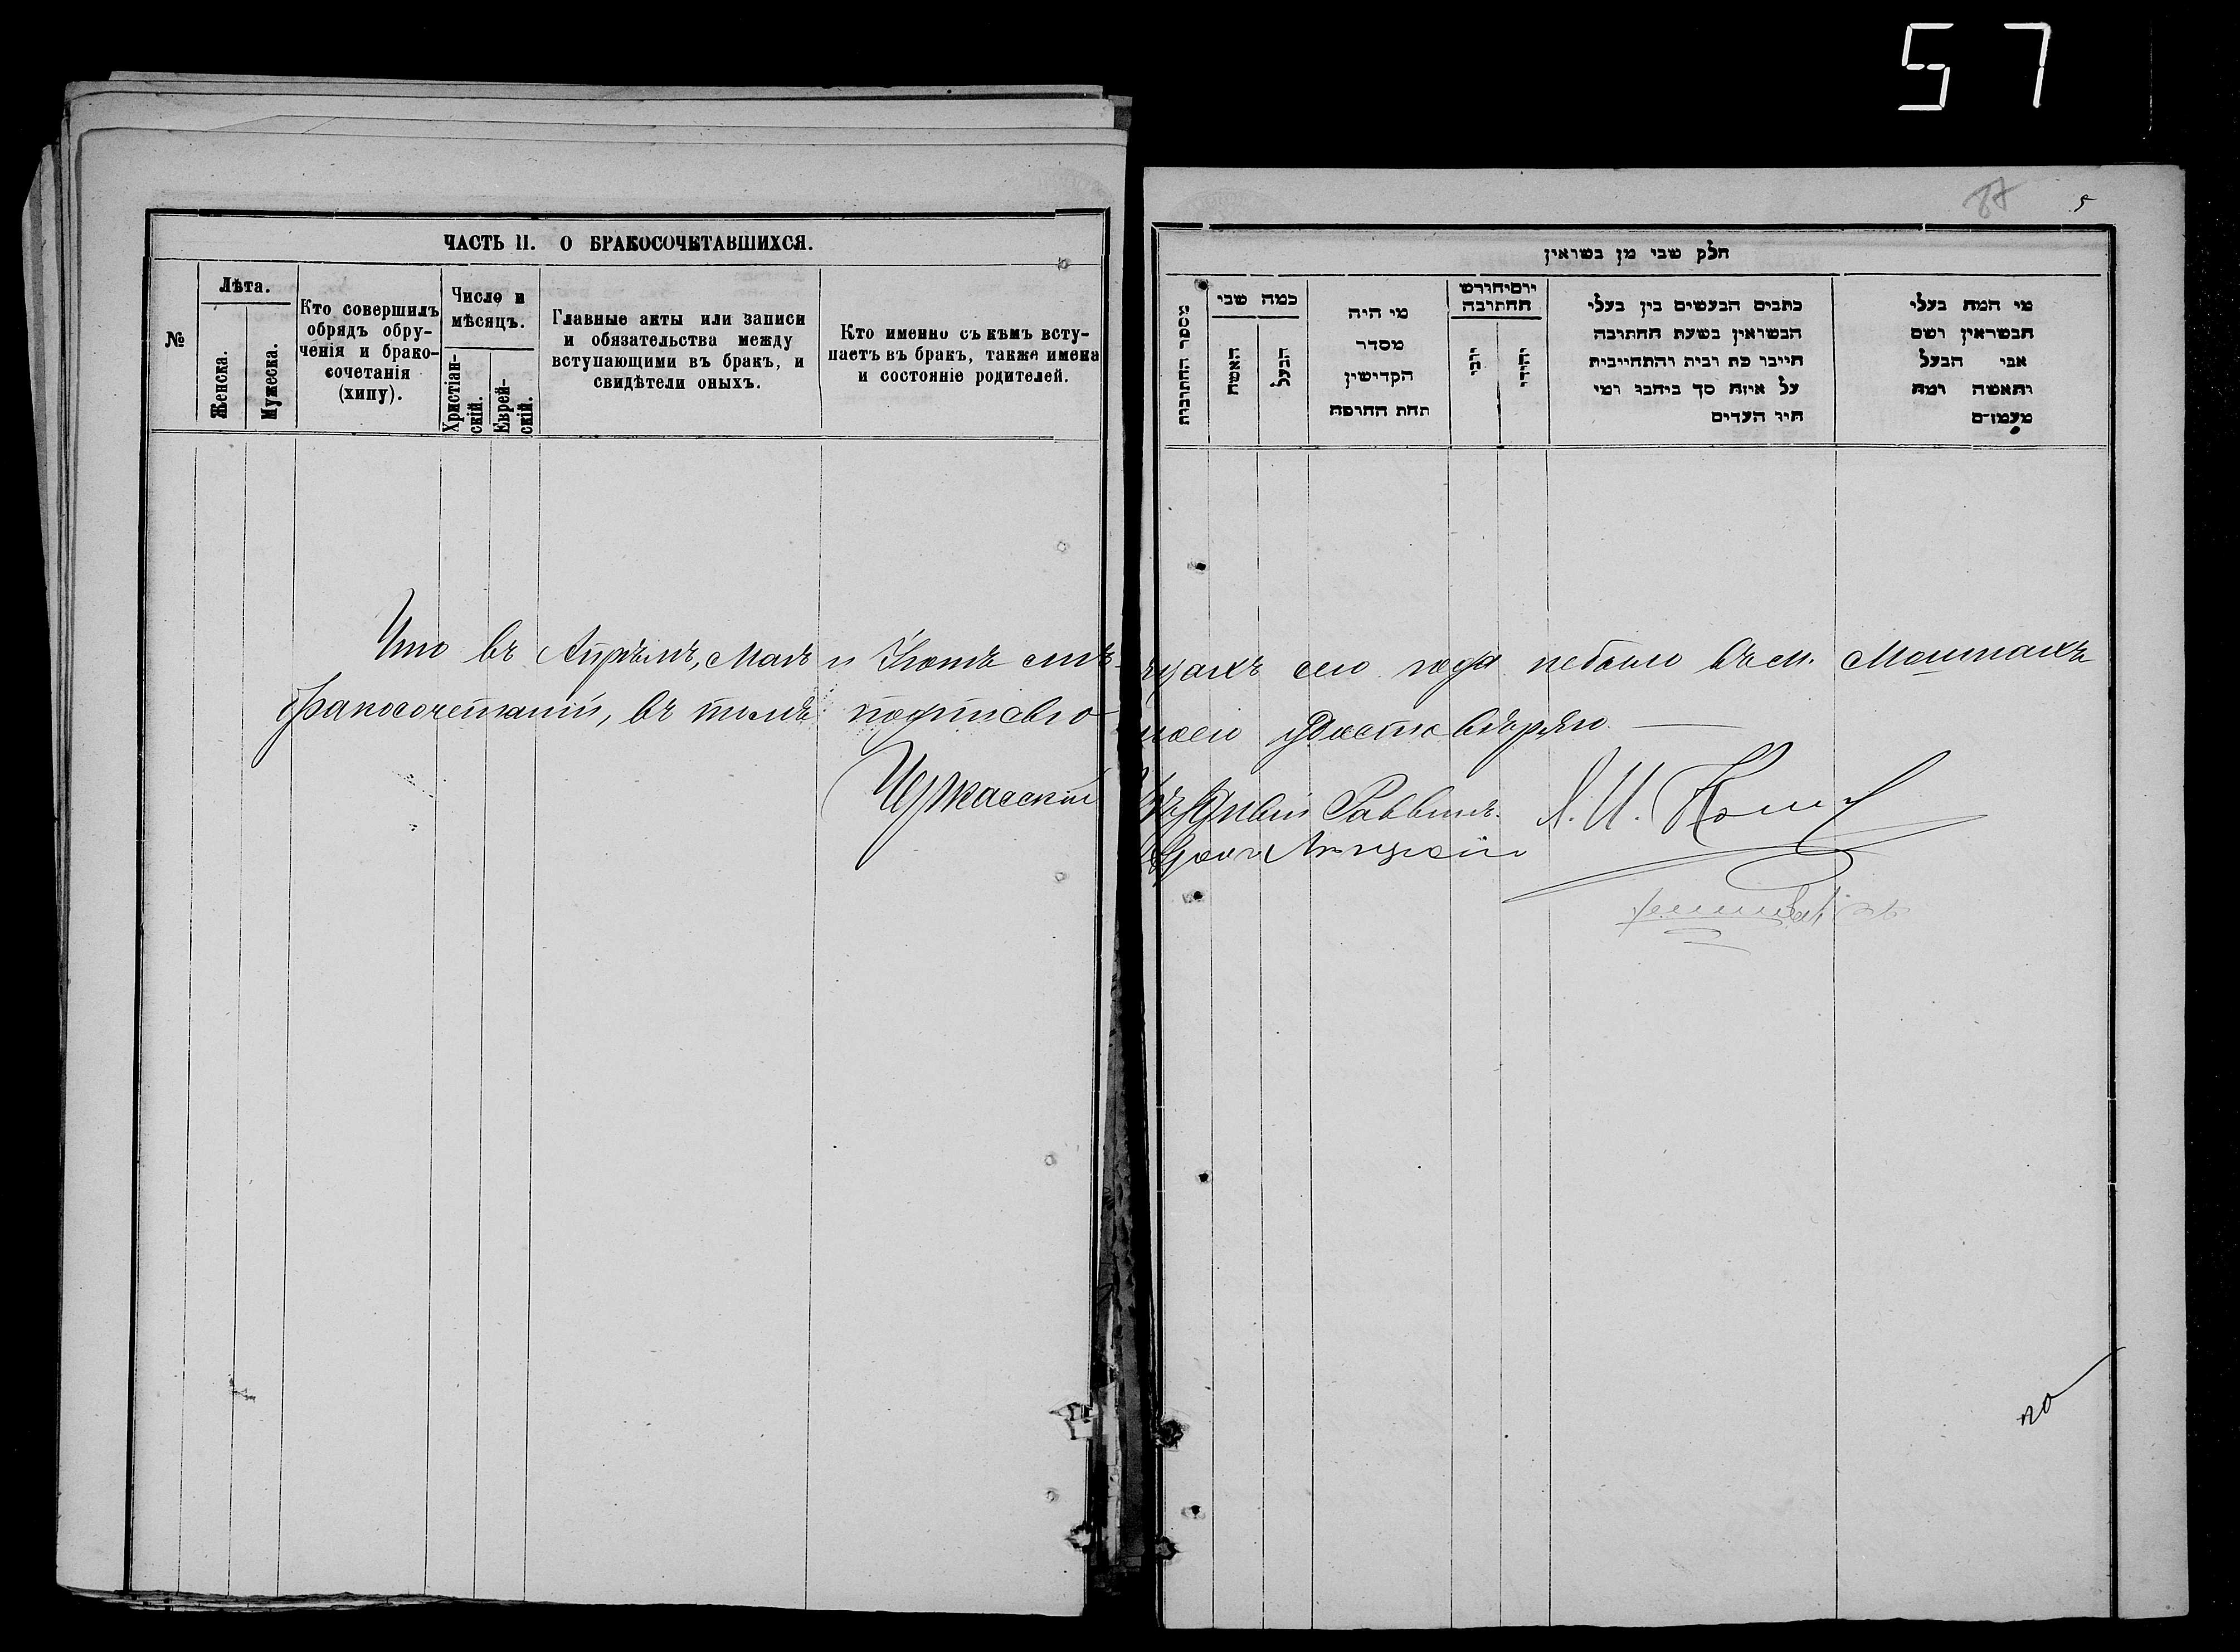 57
5
ЧАСТЬ II. О БРАКОСОЧЕТАВШИХСЯ.
№
Лѣта.
Женска.
Мужеска.
Кто совершилъ
обрядъ обру-
ченія и брако-
сочетанія
(хипу).
Число и
мѣсяцъ.
Христіан-
скій.
Еврей-
скій.
Главные акты или записи
и обязательства между
вступающими въ бракъ, и
свидѣтели оныхъ.
Кто именно съ кѣмъ всту-
паетъ въ бракъ, также имена
и состояніе родителей.
חלק שבי מן בשואין
מספר החתובות
כמה שבי
האשה
הבעל
מי היה
מסדר
הקדישין
תחת החופה
יום וחודש
החתובה
יובי
יהודי
כתבים הבעשים בין בעלי
הבשואין בשעת החתובה
חייבו כת ובית והתחייבית
על איזה סך ביתבו ומי
היו העדים
מי המה בעלי
הבשואין ושם
אבי הבעל
והאשה ומה
מעמדם
Что въ Апрѣлѣ, Маѣ и Іюнѣ мѣсяцахъ сего года небыло въ м. Мошнахъ
бракосочетаній, въ томъ подписью моею удостовѣряю.
Черкасскій Уѣздный Раввинъ. Х. И.
по